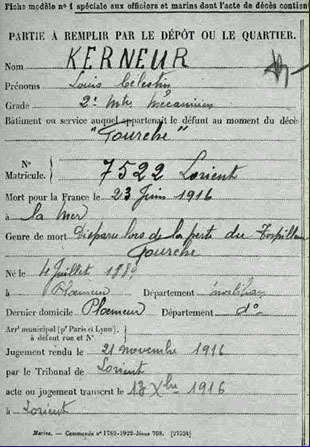 Fiche modèle nº 1 spéciale aux officiers et marins dont l'acte de décès contient
PARTIE À REMPLIR PAR LE DÉPÔT OU LE QUARTIER.
Nom KERNEUR
Prénoms Louis Célestin
Grade 2e Mtre Mécanicien
Bâtiment ou service auquel appartenait le défunt au moment du décè
"Fourche"
Nº Matricule. 7522 Lorient
Mort pour la France le 23 Juin 1916
à la mer
Genre de mort Disparu lors de la perte du Torpilleur
Fourche
Né le 4 Juillet
à Ploemeur Département Morbihan
Dernier domicile Ploemeur Département dº
Arrt municipal (pr Paris et Lyon)
à défaut rue et Nº
Jugement rendu le 21 novembre 1916
par le Tribunal de Lorient
acte ou jugement transcrit le 13 Xbre 1916
à Lorient
Marine. — Commande nº 1762-1922-Jésus 708. [27524]